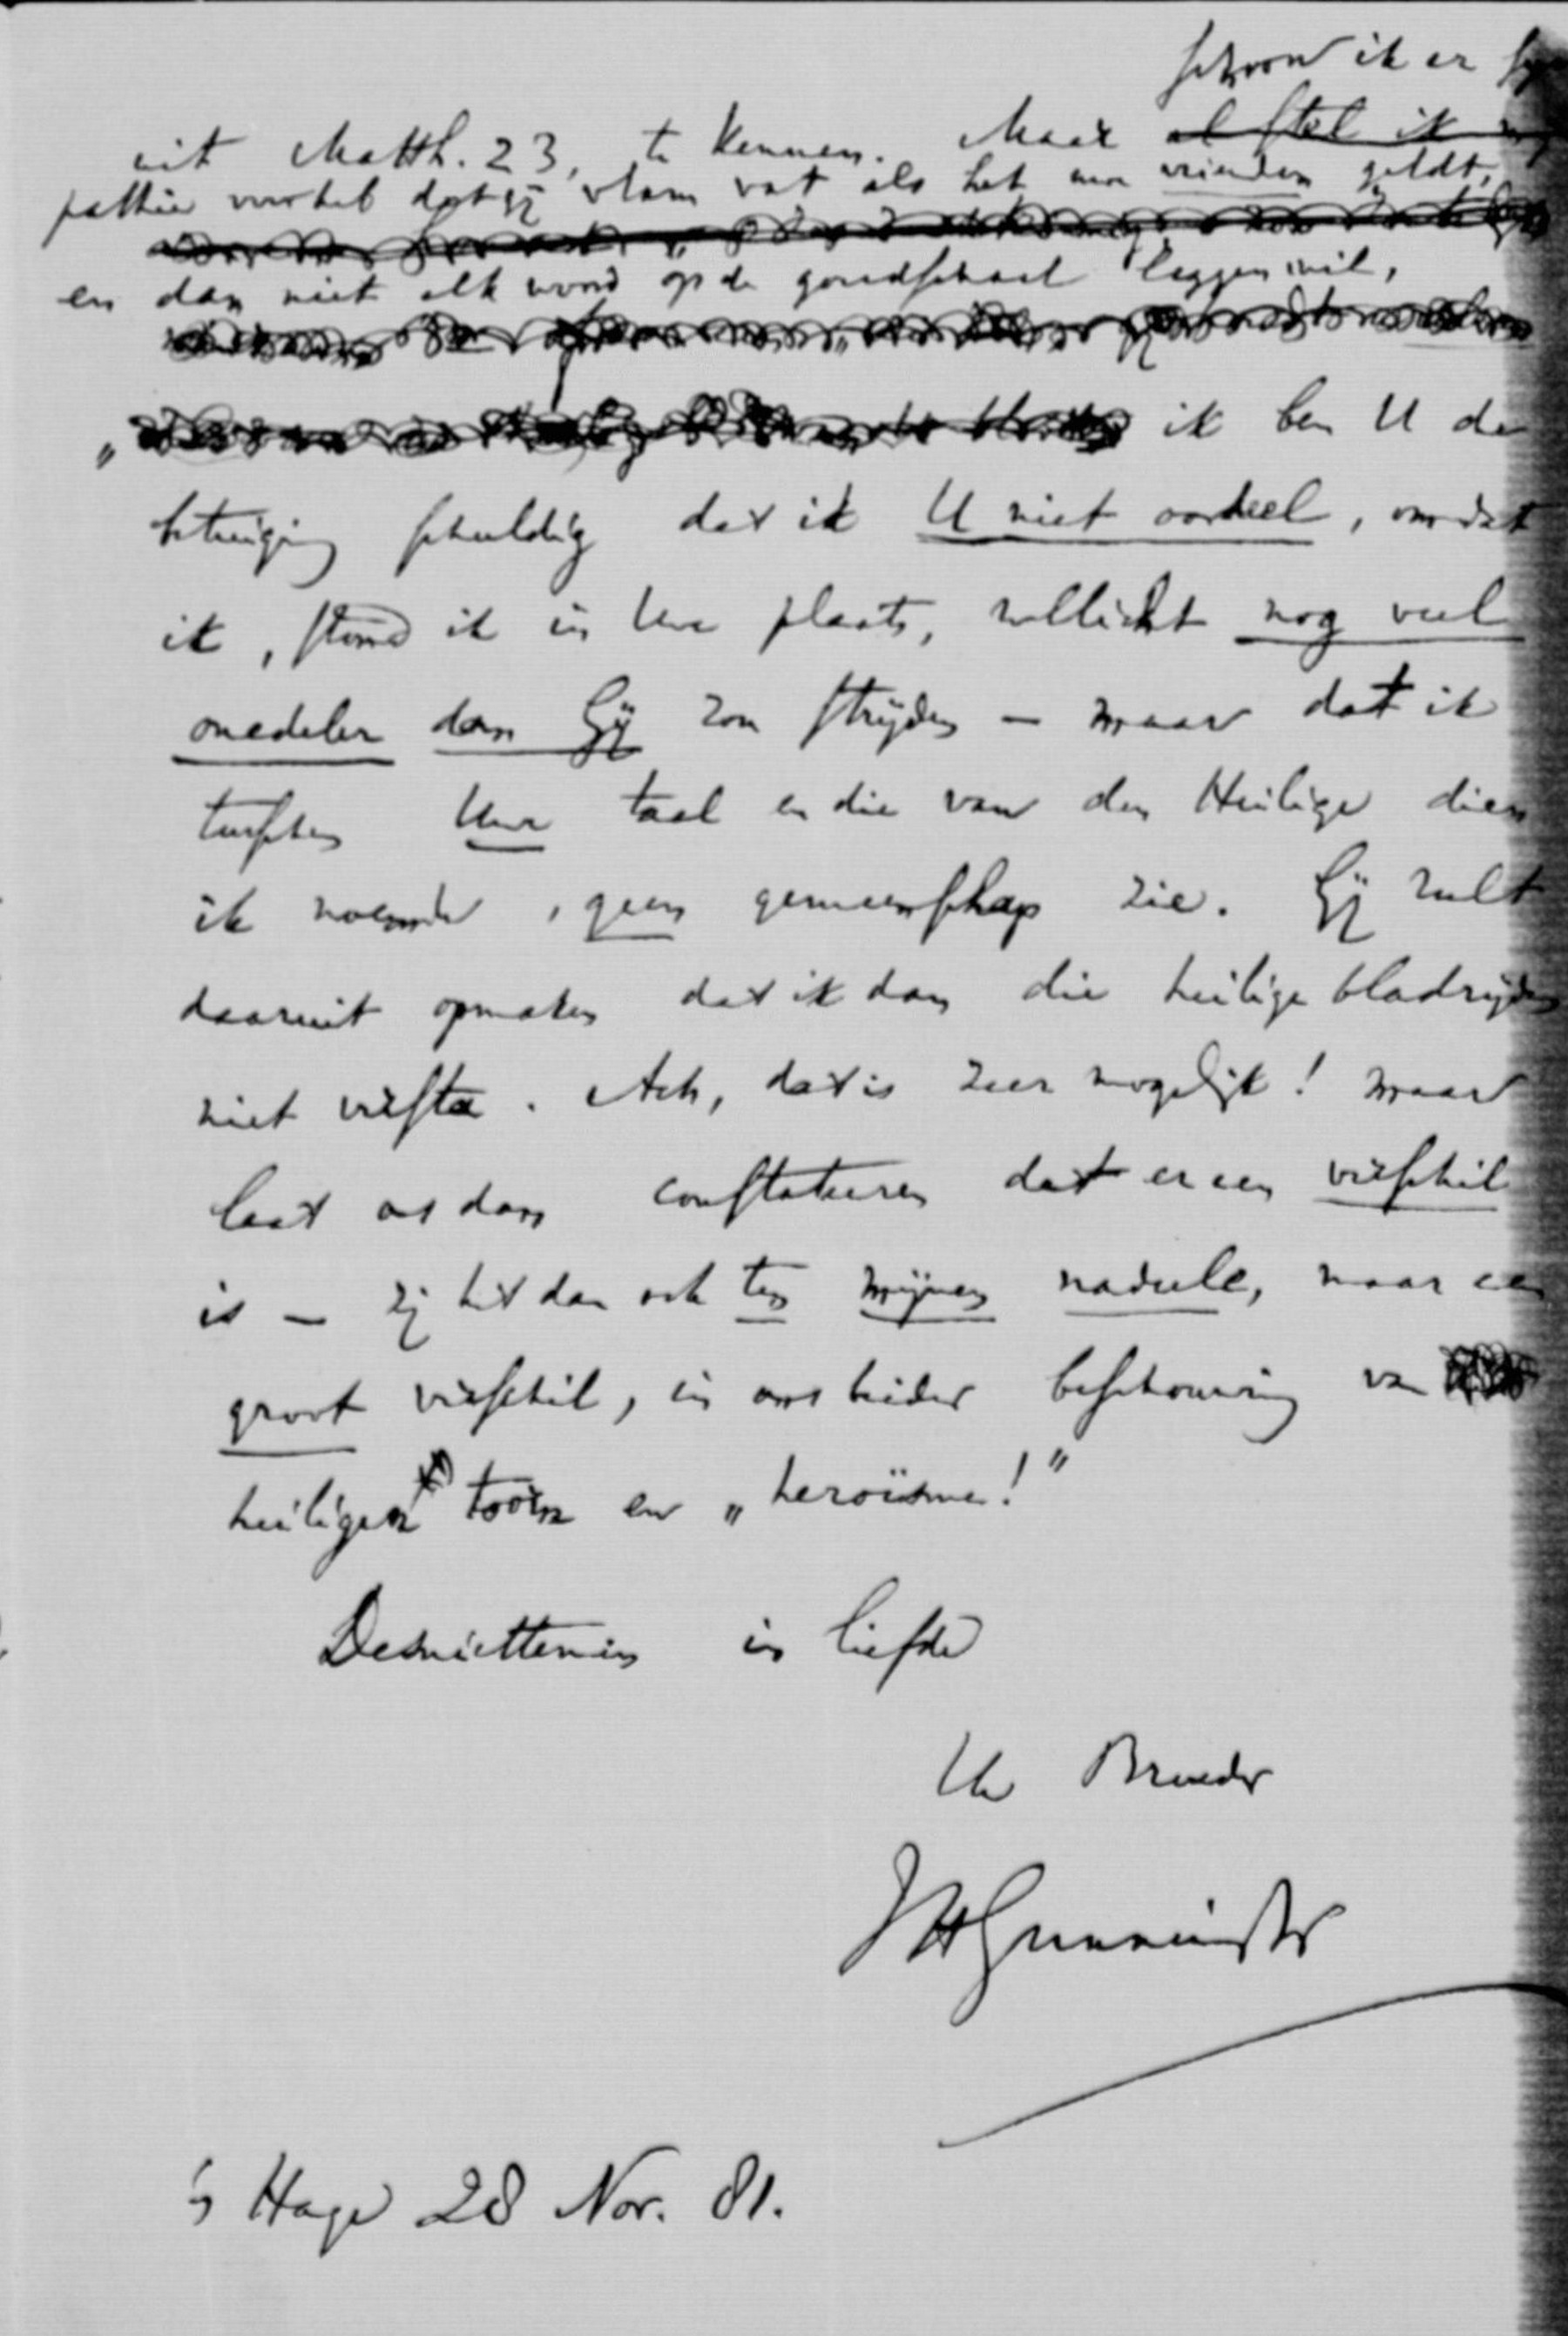 schoon ik er
uit Matth. 23, te kennen. Maar al stel ik
pathie voorstel dat gij vlam vat als het uw vrienden geldt,
en dan niet elk woord op de goudschaal leggen wil,
" ik ben U de
betuiging schuldig dat ik U niet oordeel, omdat
ik, stond ik in Uwe plaats, wellicht nog veel
onedeler dan Gij zou strijden – maar dat ik
tusschen Uwe taal en die van den Heilige dien
ik noemde, geen gemeenschap zie. Gij zult
daaruit opmaken dat ik dan die heilige bladzijden
niet versta. Ach, dat is zeer mogelijk! maar
laat ons dan constateeren dat er een verschil
is – zij het dan ook ten mijnen nadeele, maar een
groot verschil, in ons beider beschouwing van
heiligen toorn en „heroïsme!"
Desniettemin in liefde
Uw Broeder
JHGunningJr
's Hage 28 Nov. 81.